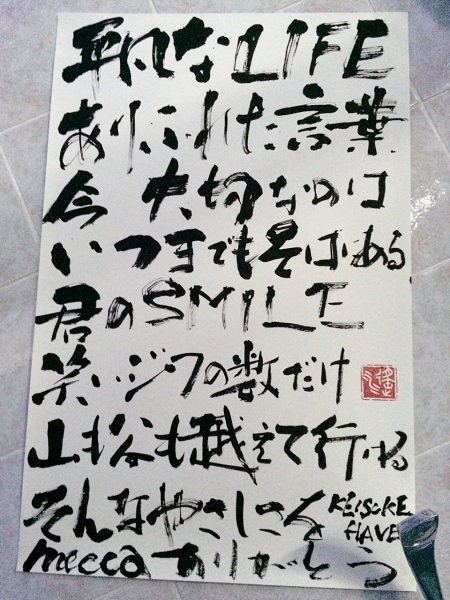 平凡なLIFE
ありふれた言葉
今 大切なのは
いつまでもそばにある
君のSMILE
笑いジワの数だけ
山も谷も越えて行ける
そんなやさしさを
KEISUKE
HAVE
meccaありがとう